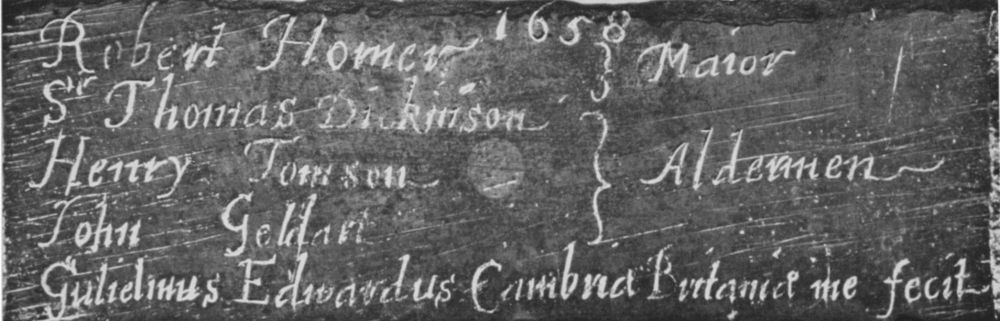 1658
Robert Horner } Maior
Sr Thomas Dickinson
Henry Tomson } Aldermen
John Geldart
Gulielmus Edwardus Cambria Britania me fecit